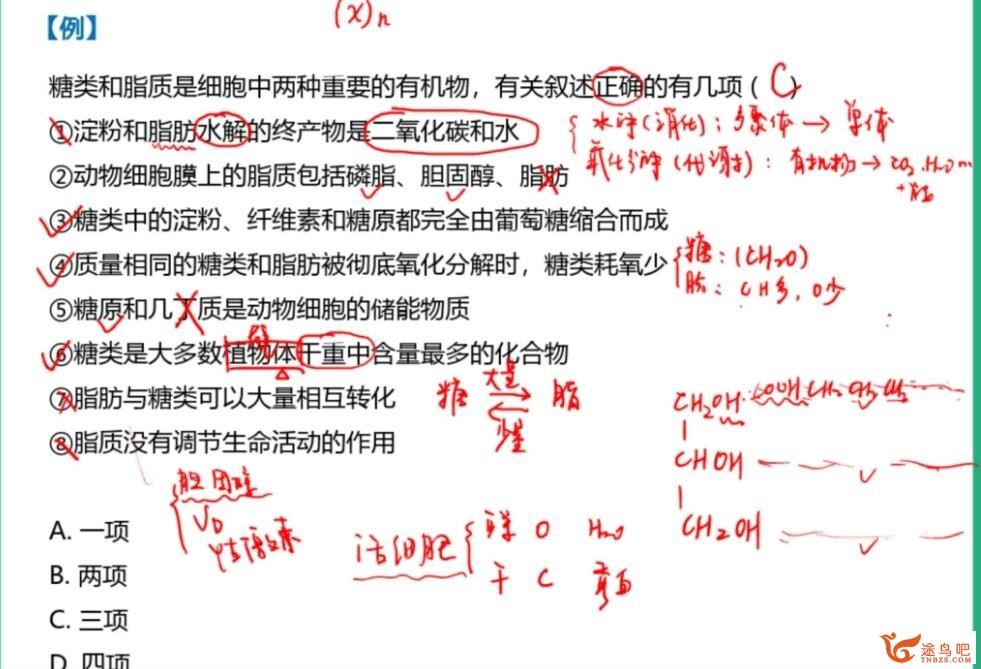 (x)n
【例】
糖类和脂质是细胞中两种重要的有机物，有关叙述正确的有几项（C）
①淀粉和脂肪水解的终产物是二氧化碳和水
水解(消化)：多聚体→单体
氧化分解(代谢)：有机物→CO₂、H₂O
+能
②动物细胞膜上的脂质包括磷脂、胆固醇、脂肪
③糖类中的淀粉、纤维素和糖原都完全由葡萄糖缩合而成
④质量相同的糖类和脂肪被彻底氧化分解时，糖类耗氧少
糖：(CH₂O)
脂：CH多，O少
⑤糖原和几丁质是动物细胞的储能物质
⑥糖类是大多数植物体干重中含量最多的化合物
⑦脂肪与糖类可以大量相互转化
糖 大量 脂
少量
⑧脂质没有调节生命活动的作用
CH₂OH
CHOH
CH₂OH
胆固醇
VD
性激素
活细胞
鲜 O H₂O
干 C 蛋白
A. 一项
B. 两项
C. 三项
D. 四项
途鸟吧
TNBZS.COM